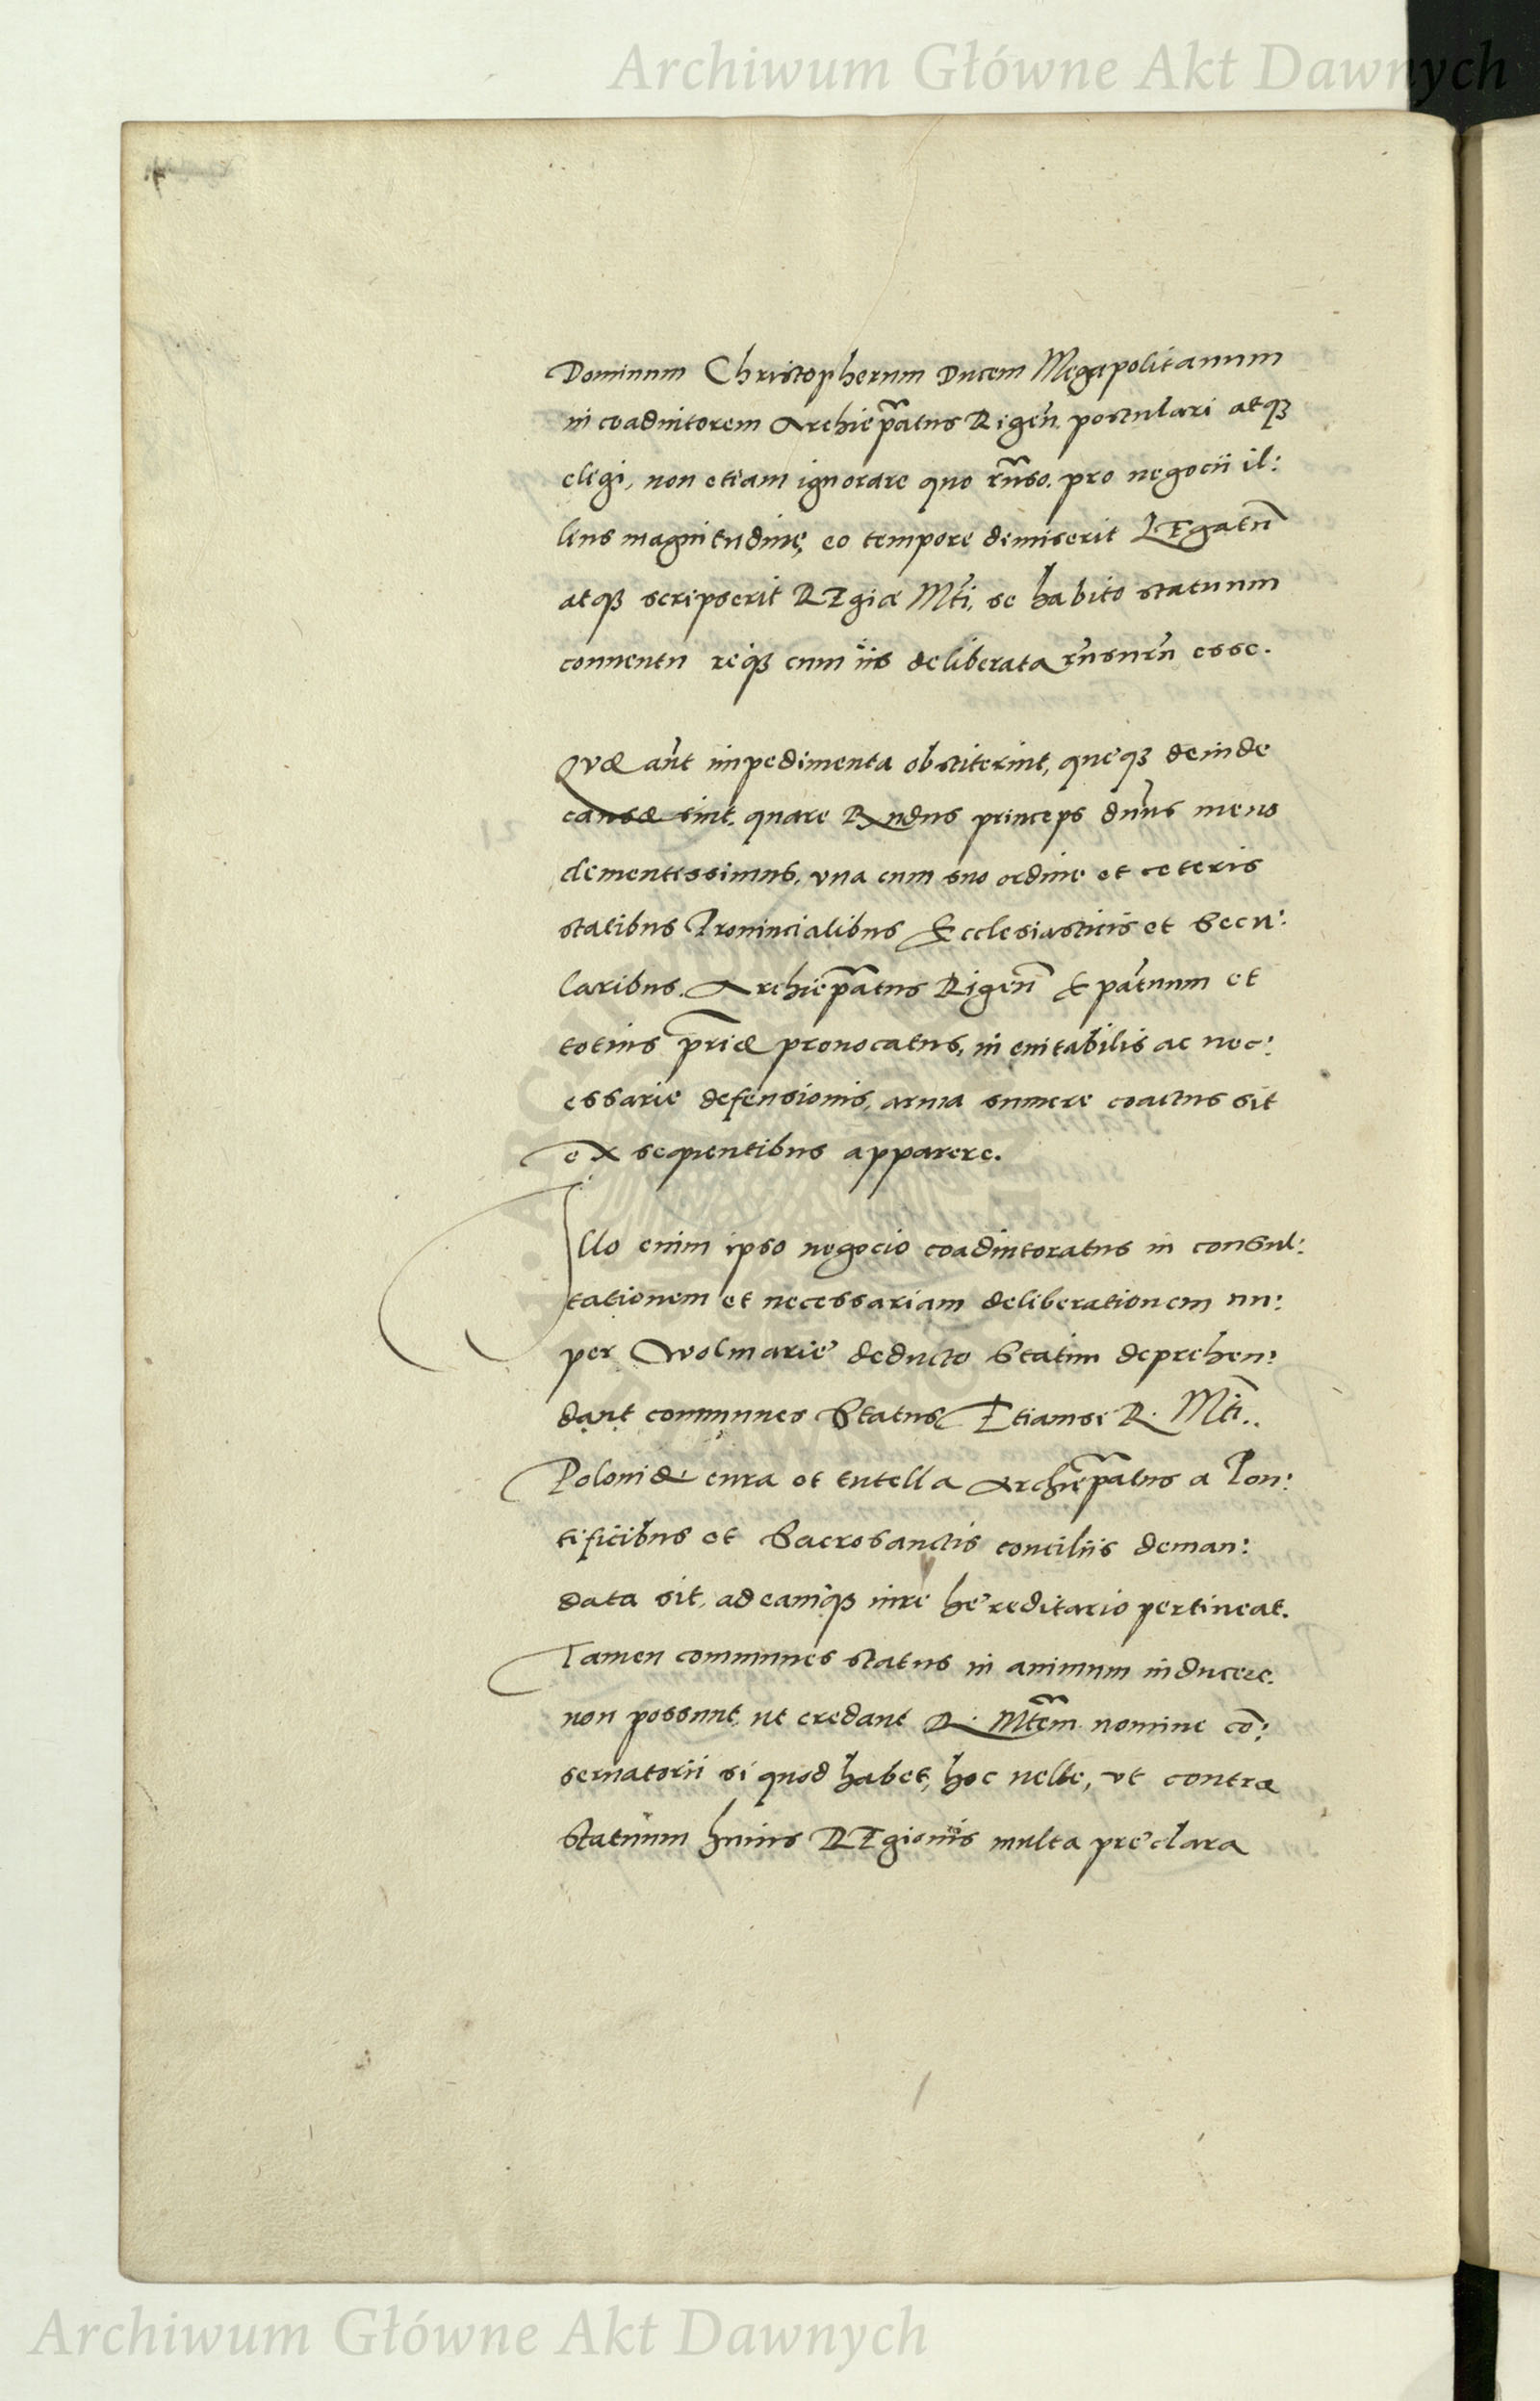 Archiwum Główne Akt Dawnych
Dominum Christopherum Ducem Megapolitanum
in coadiutorem Archiep̃atus Rigeñ. postulari atqȝ
eligi, non etiam ignorare quo rñso. pro negocii il:
lius magnitudine, eo tempore demiserit LEgatũ
atqȝ scripserit REgiæ Mti, se habito statuum
conuentu reqȝ cum iis deliberata rñsurũ esse.
Qvæ aũt impedimenta obstiterint, queqȝ deinde
causæ sint. quare Rndus princeps dñus meus
clementissimus, vna cum suo ordine et ceteris
statibus Prouincialibus Ecclesiasticis et Secu:
laribus. Archiep̃atus Rigeñ Epatuum et
totius p̃riæ prouocatus, in euitabilis ac nec:
essarie defensionis, arma sumere coactus sit
ex sequentibus apparere.
Illo enim ipso negocio coadiutoratus in consul:
tationem et necessariam deliberationem nu:
per Wolmarie deducto Statim deprehen:
dant communes Status Etiamsi R. Mti..
Poloniæ cura et tutella Archiep̃atus a Pon:
tificibus et Sacrosanctis conciliis deman:
data sit, ad eamqȝ iure hereditario pertineat.
Tamen communes status in animum inducere.
non possunt, ut credant R. Mtem nomine cõ:
seruatorii si quod habet, hoc uelle, vt contra
Statuum huius REgionis multa preclara
ARCHIWUM
Archiwum Główne Akt Dawnych